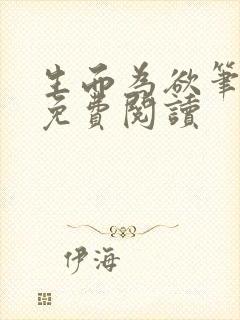 生而為欲筆
免費閱讀
伊海